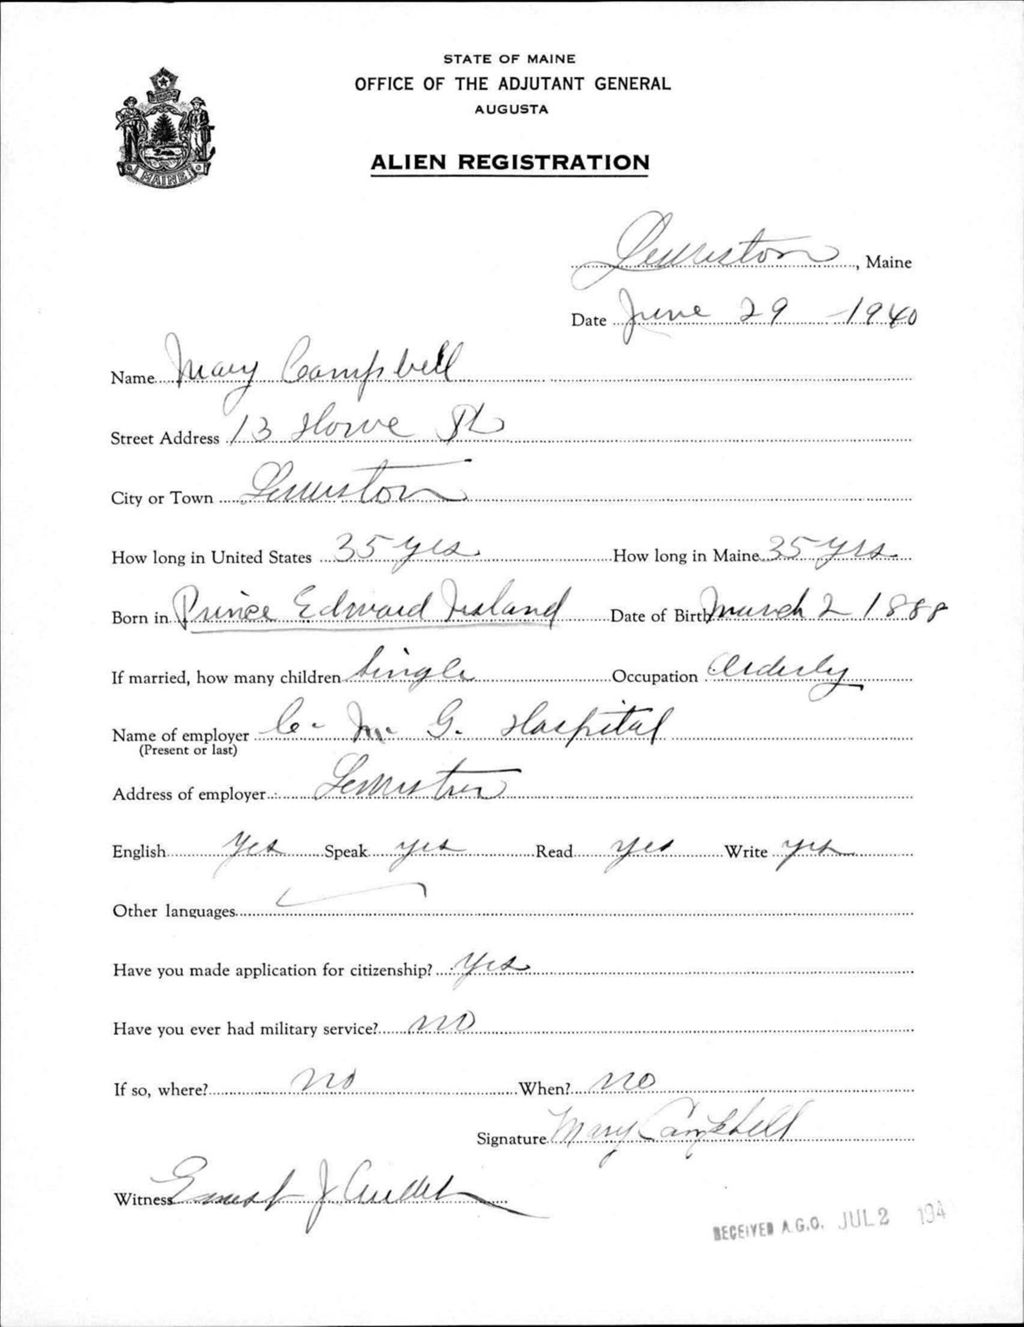 STATE OF MAINE
OFFICE OF THE ADJUTANT GENERAL
AUGUSTA
ALIEN REGISTRATION
MAINE
Lewiston, Maine
Date June 29 - 1940
Name Mary Campbell
Street Address 13 Howe St
City or Town Lewiston
How long in United States 35 yrs. How long in Maine 35 yrs.
Born in Prince Edward Island Date of Birth March 2 1888
If married, how many children Single Occupation Orderly
Name of employer C. M. G. Hospital
(Present or last)
Address of employer Lewiston
English yes Speak yes Read yes Write yes
Other languages
Have you made application for citizenship? Yes
Have you ever had military service? no
If so, where? no When? no
Signature Mary Campbell
Witness Ernest J Audet
RECEIVED A.G.O. JUL 2 194